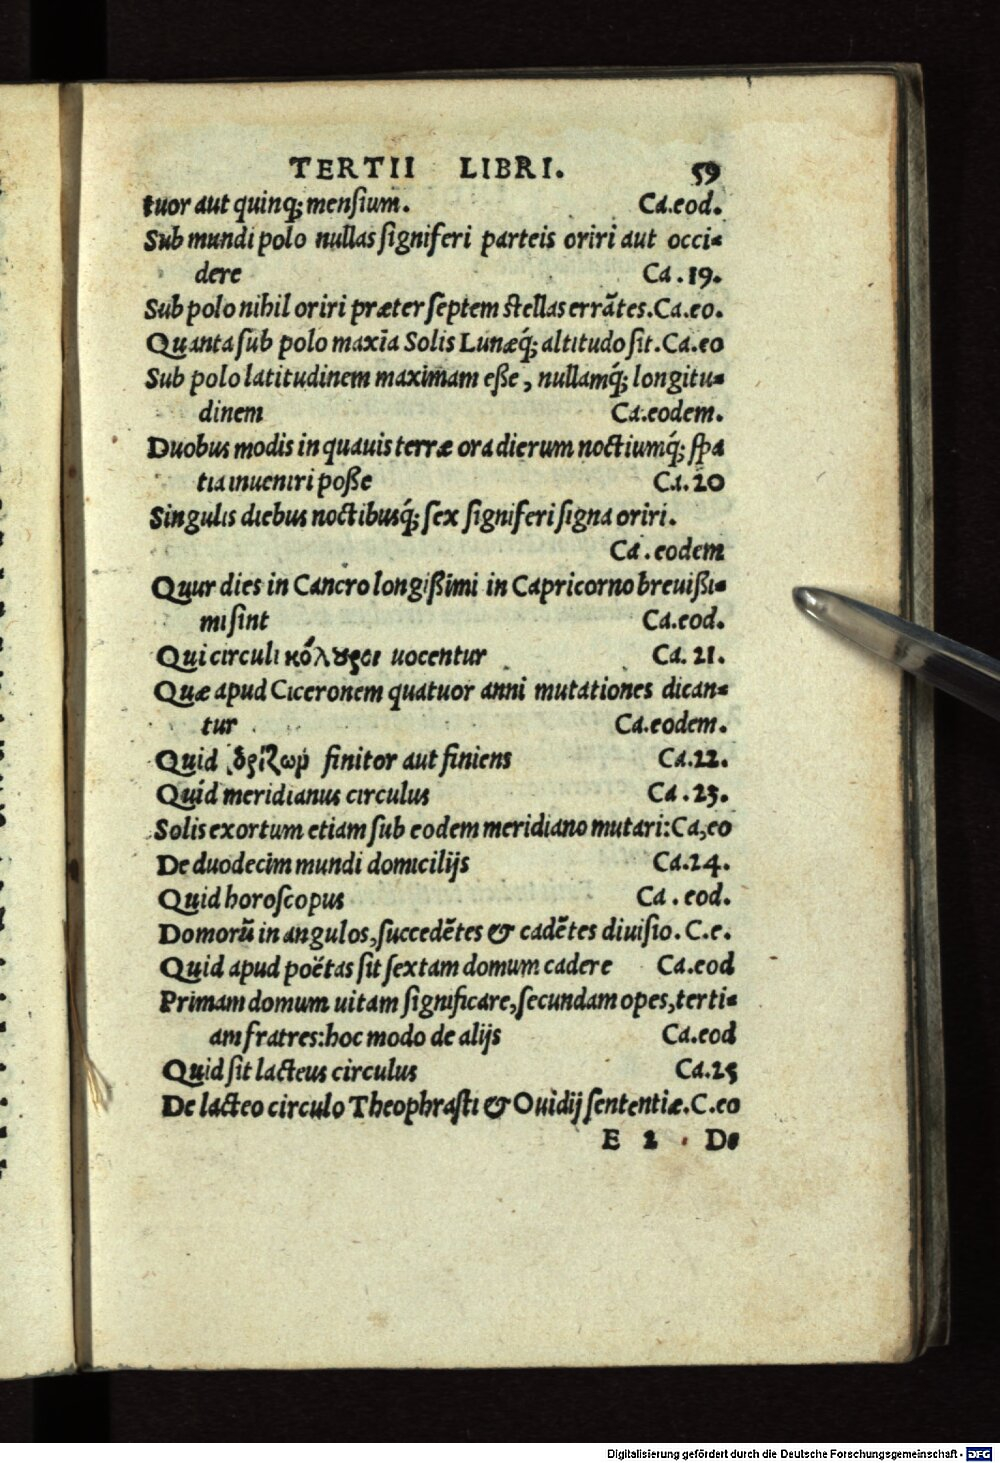 TERTII LIBRI. 59
tuor aut quinq; menſium. Ca.eod.
Sub mundi polo nullas ſigniferi parteis oriri aut occi-
dere Ca.19.
Sub polo nihil oriri præter ſeptem ſtellas errãtes. Ca.eo.
Quanta ſub polo maxĩa Solis Lunæq́; altitudo ſit. Ca.eo
Sub polo latitudinem maximam eſſe, nullamq́; longitu-
dinem Ca.eodem.
Duobus modis in quauis terræ ora dierum noctiumq́; ſpa
tia inueniri poſſe Ca.20
Singulis diebus noctibusq́; ſex ſigniferi ſigna oriri.
Ca.eodem
Quur dies in Cancro longiſſimi in Capricorno breuiſſi-
mi ſint Ca.eod.
Qui circuli κόλȣροι uocentur Ca.21.
Quæ apud Ciceronem quatuor anni mutationes dican-
tur Ca.eodem.
Quid ὁρίζωμ finitor aut finiens Ca.22.
Quid meridianus circulus Ca.23.
Solis exortum etiam ſub eodem meridiano mutari: Ca,eo
De duodecim mundi domicilijs Ca.24.
Quid horoſcopus Ca.eod.
Domorũ in angulos, ſuccedẽtes & cadẽtes diuiſio. C.e.
Quid apud poëtas ſit ſextam domum cadere Ca.eod
Primam domum uitam ſignificare, ſecundam opes, terti-
am fratres: hoc modo de alijs Ca.eod
Quid ſit lacteus circulus Ca.25
De lacteo circulo Theophraſti & Ouidij ſententiæ. C.eo
E 2 De
Digitalisierung gefördert durch die Deutsche Forschungsgemeinschaft - DFG